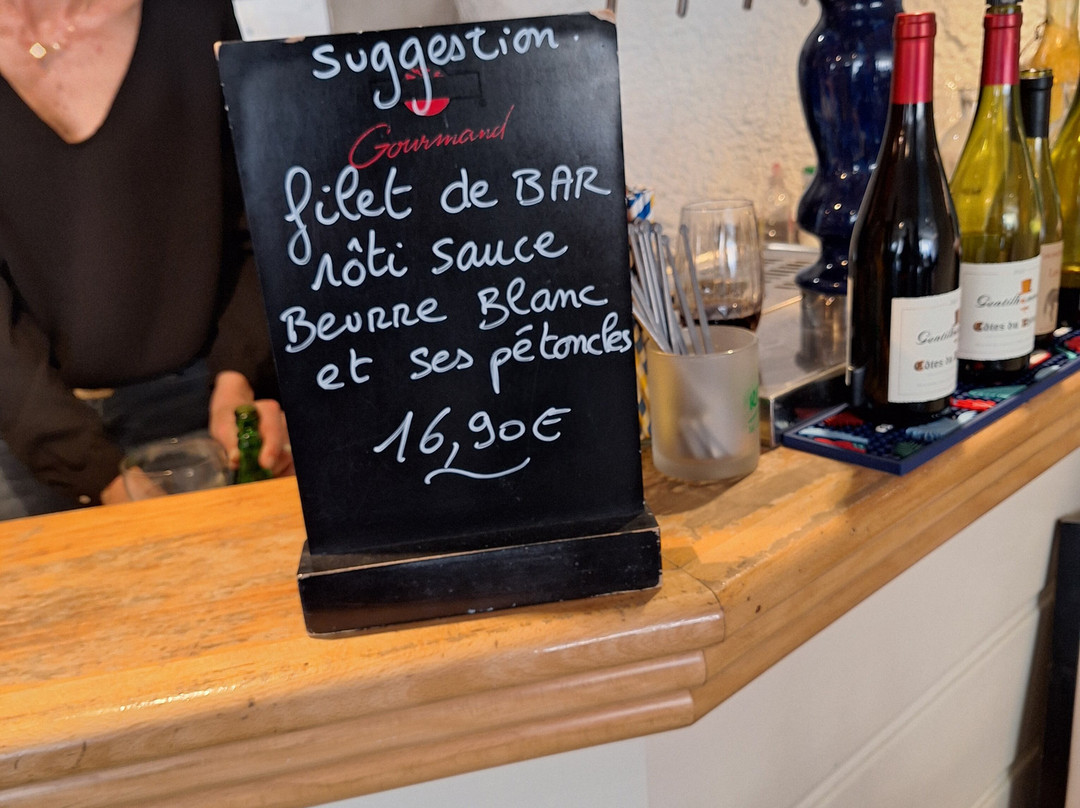 suggestion
Gourmand
filet de BAR
rôti sauce
Beurre Blanc
et ses pétoncles
16,90€
Côtes du
Côtes du